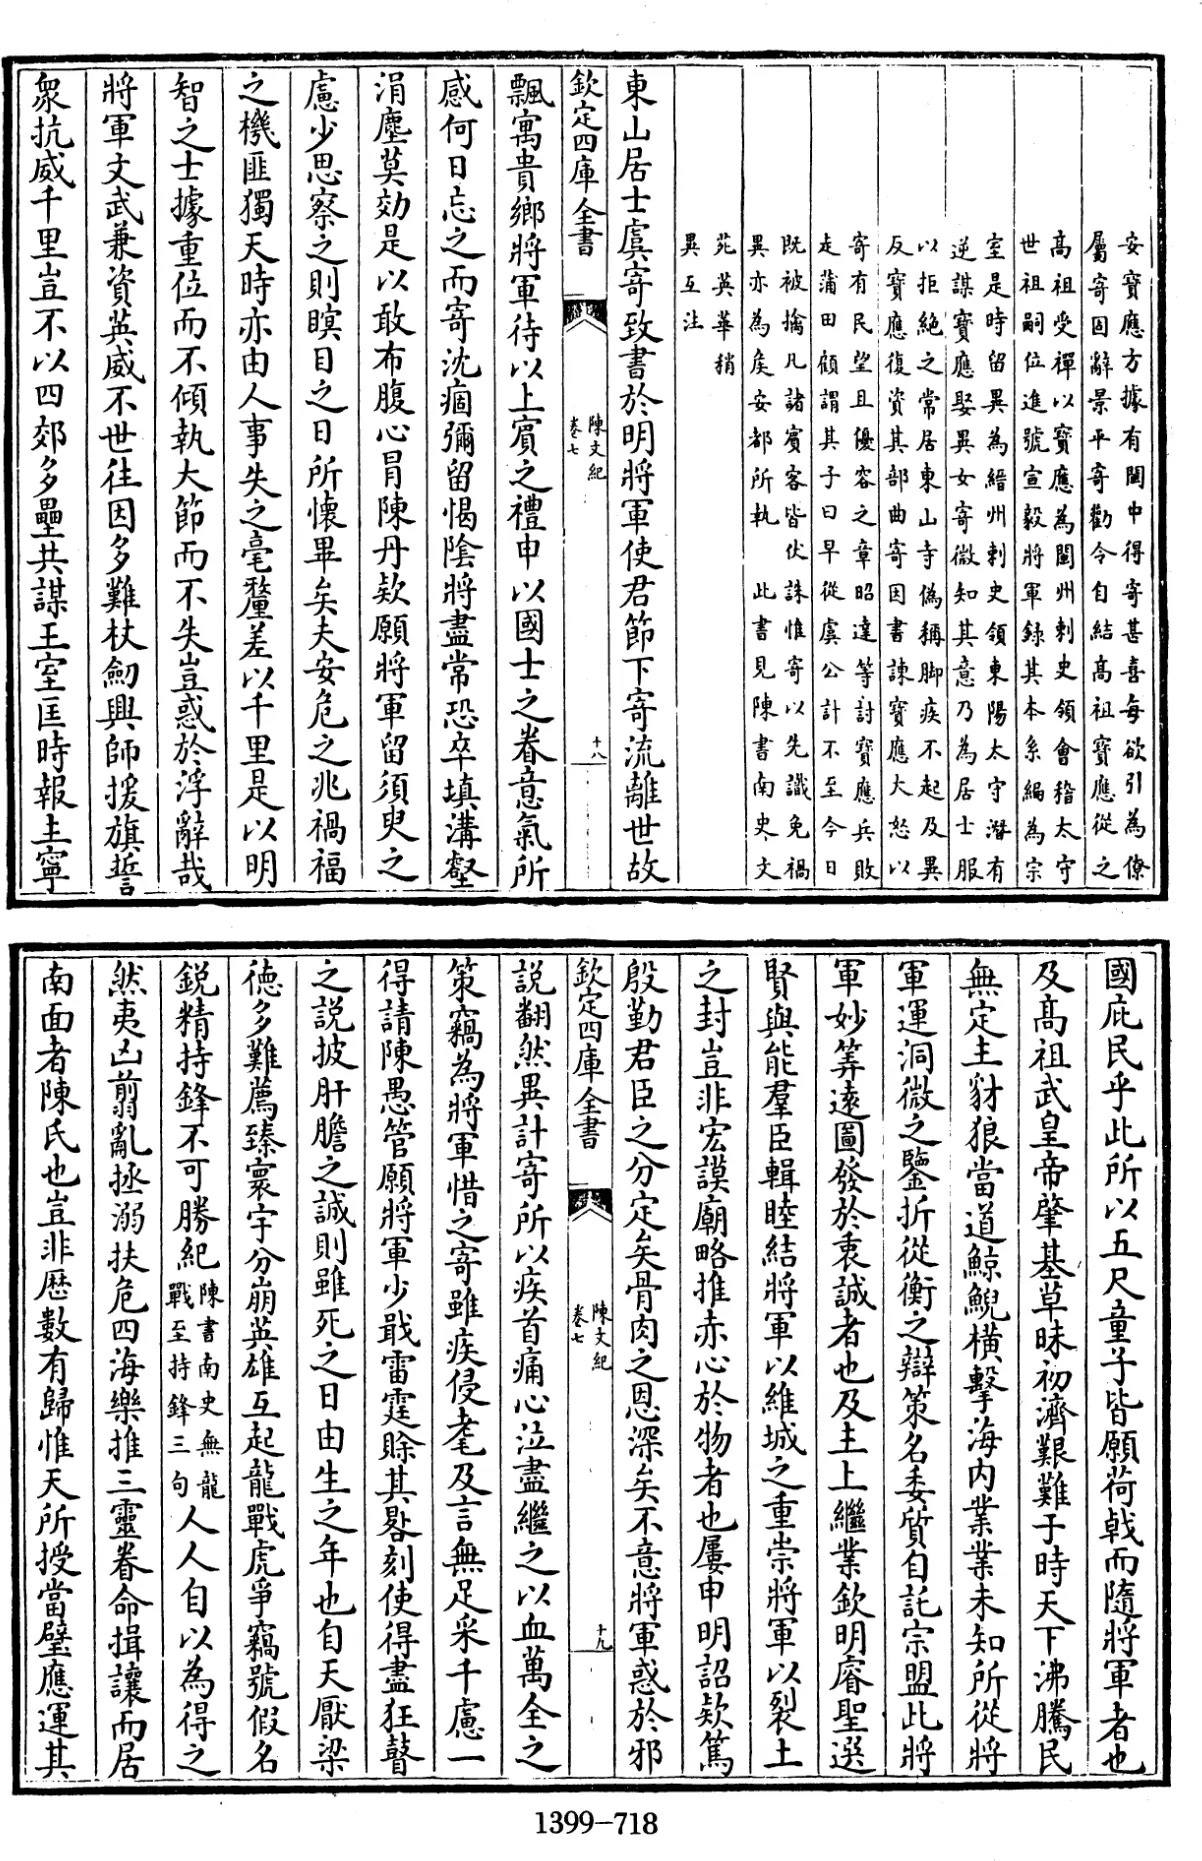 安寳應方據有閩中得寄甚喜每欲引為僚
屬寄固辭景平寄勸令自結髙祖寳應從之
髙祖受禪以寳應為閩州刺史領會稽太守
世祖嗣位進號宣毅將軍録其本系編為宗
室是時留異為縉州刺史領東陽太守潛有
逆謀寳應娶異女寄微知其意乃為居士服
以拒絶之常居東山寺偽稱脚疾不起及異
反寳應復資其部曲寄因書諫寳應大怒以
寄有民望且優容之章昭達等討寳應兵敗
走蒲田顧謂其子曰早從虞公計不至今日
既被擒凡諸賓客皆伏誅惟寄以先識免禍
異亦為矦安都所執 此書見陳書南史文
苑英華稍
異互注
東山居士虞寄致書於明將軍使君節下寄流離世故
欽定四庫全書
陳文紀
卷七
十八
飄寓貴鄉將軍待以上賓之禮申以國士之眷意氣所
感何日忘之而寄沈痼彌留愒陰將盡常恐卒填溝壑
涓塵莫効是以敢布腹心冒陳丹欵願將軍留須臾之
慮少思察之則瞑目之日所懷畢矣夫安危之兆禍福
之機匪獨天時亦由人事失之毫釐差以千里是以明
智之士據重位而不傾執大節而不失豈惑於浮辭哉
將軍文武兼資英威不世往因多難杖劒興師援旗誓
衆抗威千里豈不以四郊多壘共謀王室匡時報主寧
國庇民乎此所以五尺童子皆願荷戟而隨將軍者也
及髙祖武皇帝肇基草昧初濟艱難于時天下沸騰民
無定主豺狼當道鯨鯢橫擊海内業業未知所從將
軍運洞微之鑒折從衡之辯策名委質自託宗盟此將
軍妙筭逺圖發於衷誠者也及主上繼業欽明睿聖選
賢與能羣臣輯睦結將軍以維城之重崇將軍以裂土
之封豈非宏謨廟略推赤心於物者也屢申明詔欵篤
殷勤君臣之分定矣骨肉之恩深矣不意將軍惑於邪
欽定四庫全書
陳文紀
卷七
十九
説翻然異計寄所以疾首痛心泣盡繼之以血萬全之
策竊為將軍惜之寄雖疾侵耄及言無足采千慮一
得請陳愚管願將軍少戢雷霆賒其晷刻使得盡狂瞽
之説披肝膽之誠則雖死之日由生之年也自天厭梁
徳多難薦臻寰宇分崩英雄互起龍戰虎爭竊號假名
鋭精持鋒不可勝紀陳書南史無龍戰至持鋒三句人人自以為得之
然夷凶翦亂拯溺扶危四海樂推三靈眷命揖讓而居
南面者陳氏也豈非厯數有歸惟天所授當璧應運其
1399-718